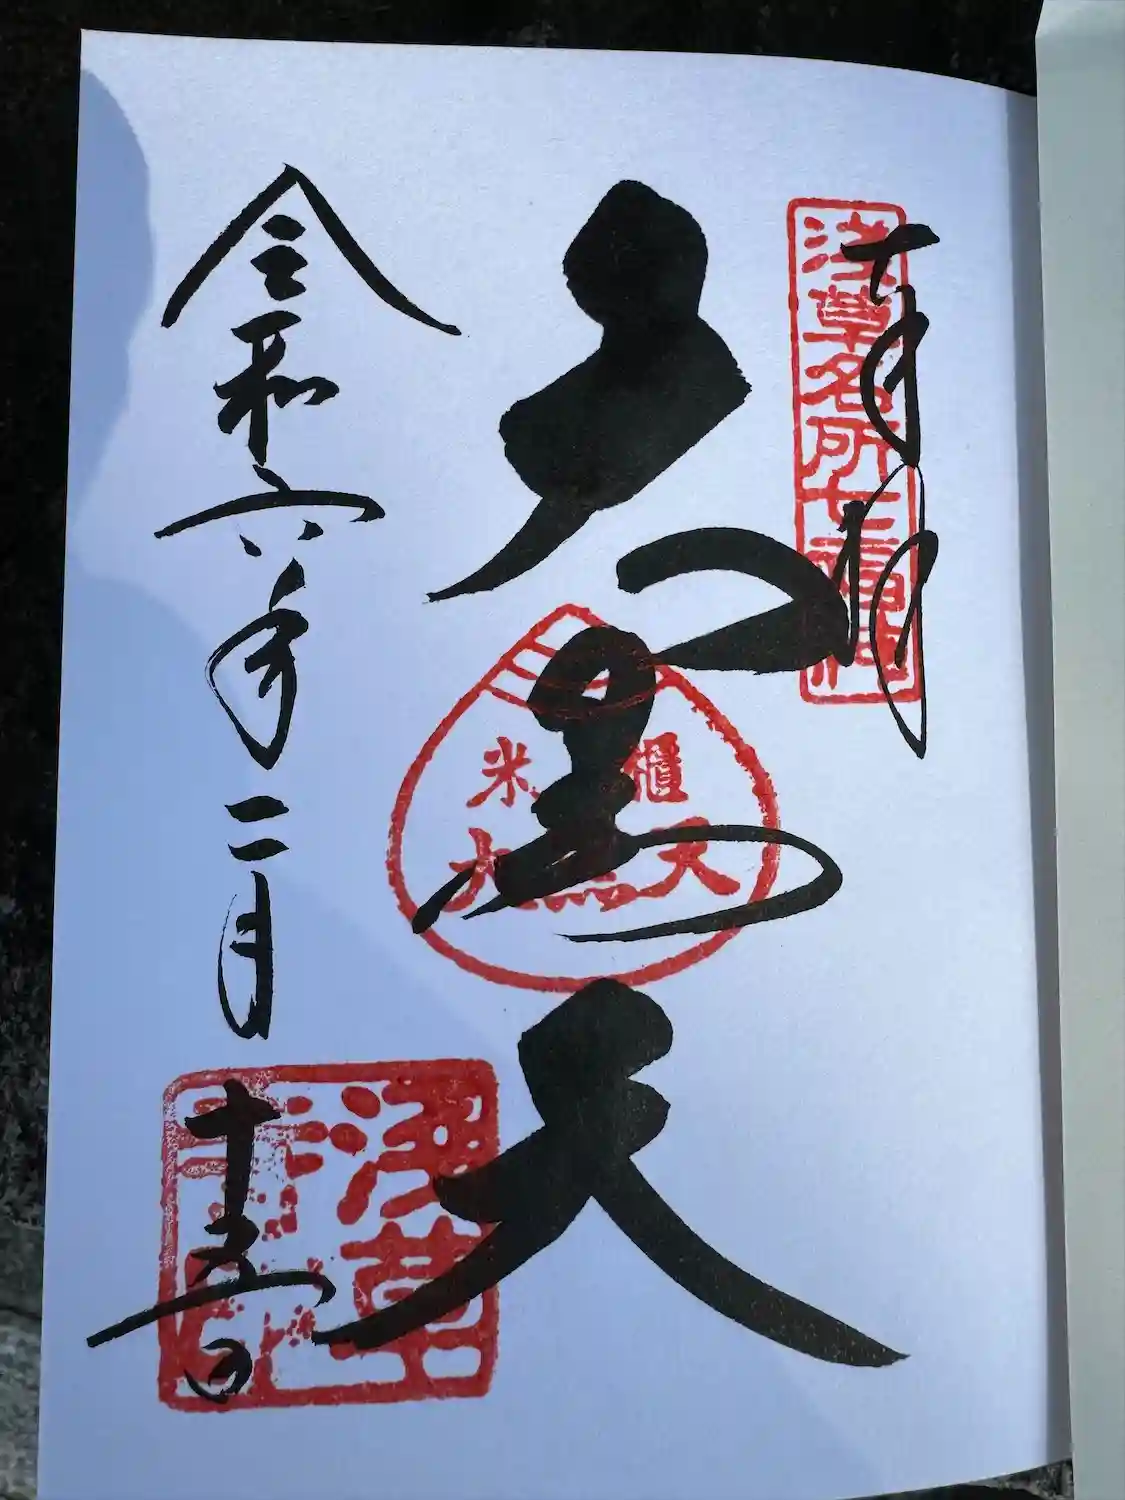 奉拝
浅草名所七福神
大黒天
米櫃
大黒天
令和六年二月十五日
浅草